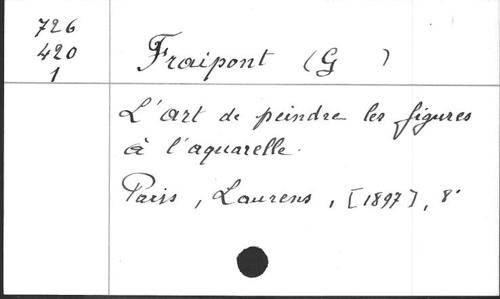 726
420
1
Fraipont (G )
L'art de peindre les figures
à l'aquarelle.
Paris, Laurens, [1897], 8°